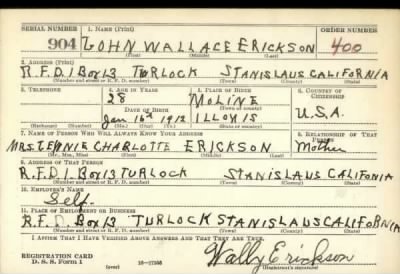 SERIAL NUMBER 1. NAME (Print) ORDER NUMBER
904 JOHN WALLACE ERICKSON 400
(First) (Middle) (Last)
2. ADDRESS (Print)
R.F.D.1 BOX 13 TURLOCK STANISLAUS CALIFORNIA
(Number and street or R. F. D. number) (Town) (County) (State)
3. TELEPHONE 4. AGE IN YEARS 5. PLACE OF BIRTH 6. COUNTRY OF CITIZENSHIP
28 MOLINE
(Town or county)
DATE OF BIRTH U.S.A.
Jan 16th 1912 ILLONIS
(Exchange) (Number) (Mo.) (Day) (Yr.) (State or country)
7. NAME OF PERSON WHO WILL ALWAYS KNOW YOUR ADDRESS 8. RELATIONSHIP OF THAT PERSON
MRS. CHARLOTTE ERICKSON Mother
(Mr., Mrs., Miss) (First) (Middle) (Last)
9. ADDRESS OF THAT PERSON
R.F.D.1. BOX 13 TURLOCK STANISLAUS CALIFONIA
(Number and street or R. F. D. number) (Town) (County) (State)
10. EMPLOYER'S NAME
Self.
11. PLACE OF EMPLOYMENT OR BUSINESS
R.F.D. BOX 13 TURLOCK STANISLAUS CALIFORNIA
(Number and street or R. F. D. number) (Town) (County) (State)
I AFFIRM THAT I HAVE VERIFIED ABOVE ANSWERS AND THAT THEY ARE TRUE.
REGISTRATION CARD Wally Erickson
D. S. S. Form 1 (over) (Registrant's signature)